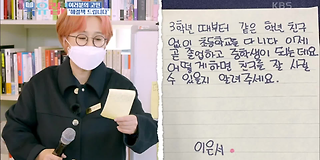 여러분의 고민
해결책 드립니다
KBS
3학년 때부터 같은 학년 친구
없이 초등학교를 다니다 이제
곧 졸업하고 중학생이 되는데요.
어떻게하면 친구를 잘 사귈
수 있을지 알려주세요.